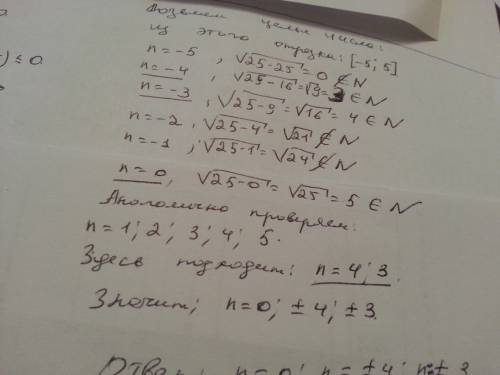 Возьмем целые числа:
из этого отрезка: [-5; 5]
n = -5, √25-25 = 0 ∉ N
n = -4, √25-16 = √9 = 3 ∈ N
n = -3, √25-9 = √16 = 4 ∈ N
n = -2, √25-4 = √21 ∉ N
n = -1, √25-1 = √24 ∉ N
n = 0, √25-0 = √25 = 5 ∈ N
Аналогично проверяем:
n = 1; 2; 3; 4; 5.
Здесь подходит: n = 4; 3.
Значит; n = 0; ±4; ±3.
n = 0; n = ±4; n = ± 3
) ≤ 0